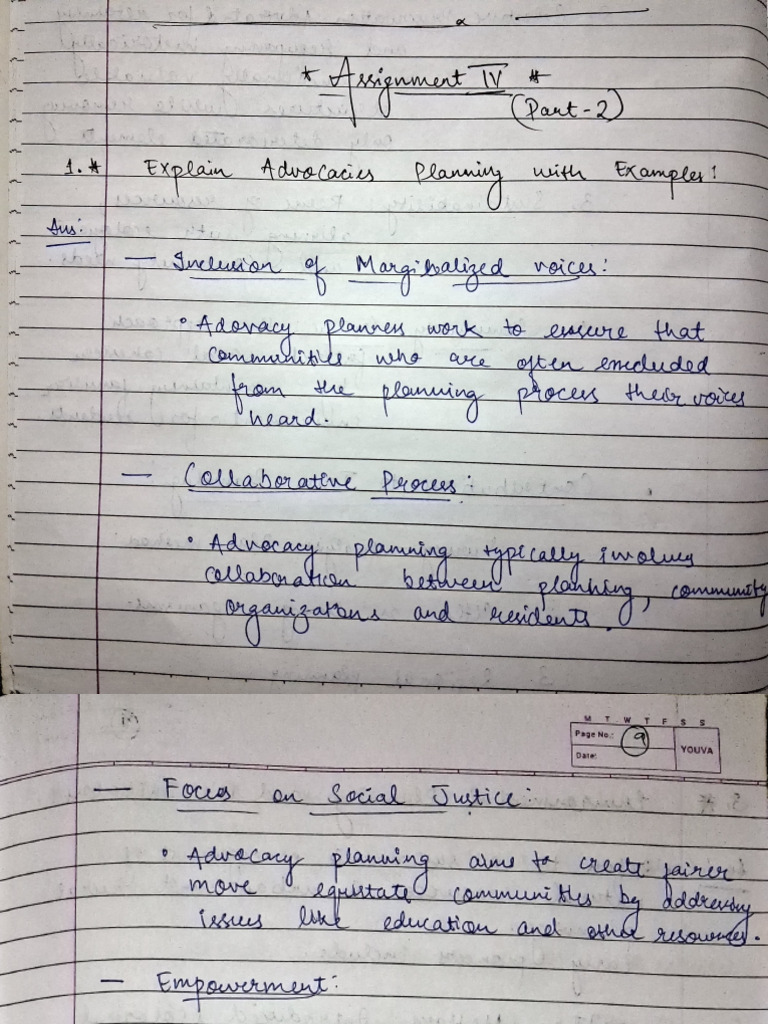 * Assignment IV *
(Part-2)
1.* Explain Advocacies Planning with Examples!
Ans:
— Inclusion of Marginalized voices:
• Adovacy planners work to ensure that
communities who are often excluded
from the planning process their voices
heard.
— Collaborative Process:
• Advocacy planning typically involves
collaboration between planning, community
organizations and residents.
M T W T F S S
Page No.: 9
YOUVA
Date:
— Focus on Social Justice:
• Advocacy planning aims to create fairer
move equitate communities by addressing
issues like education and other resources.
— Empowerment: